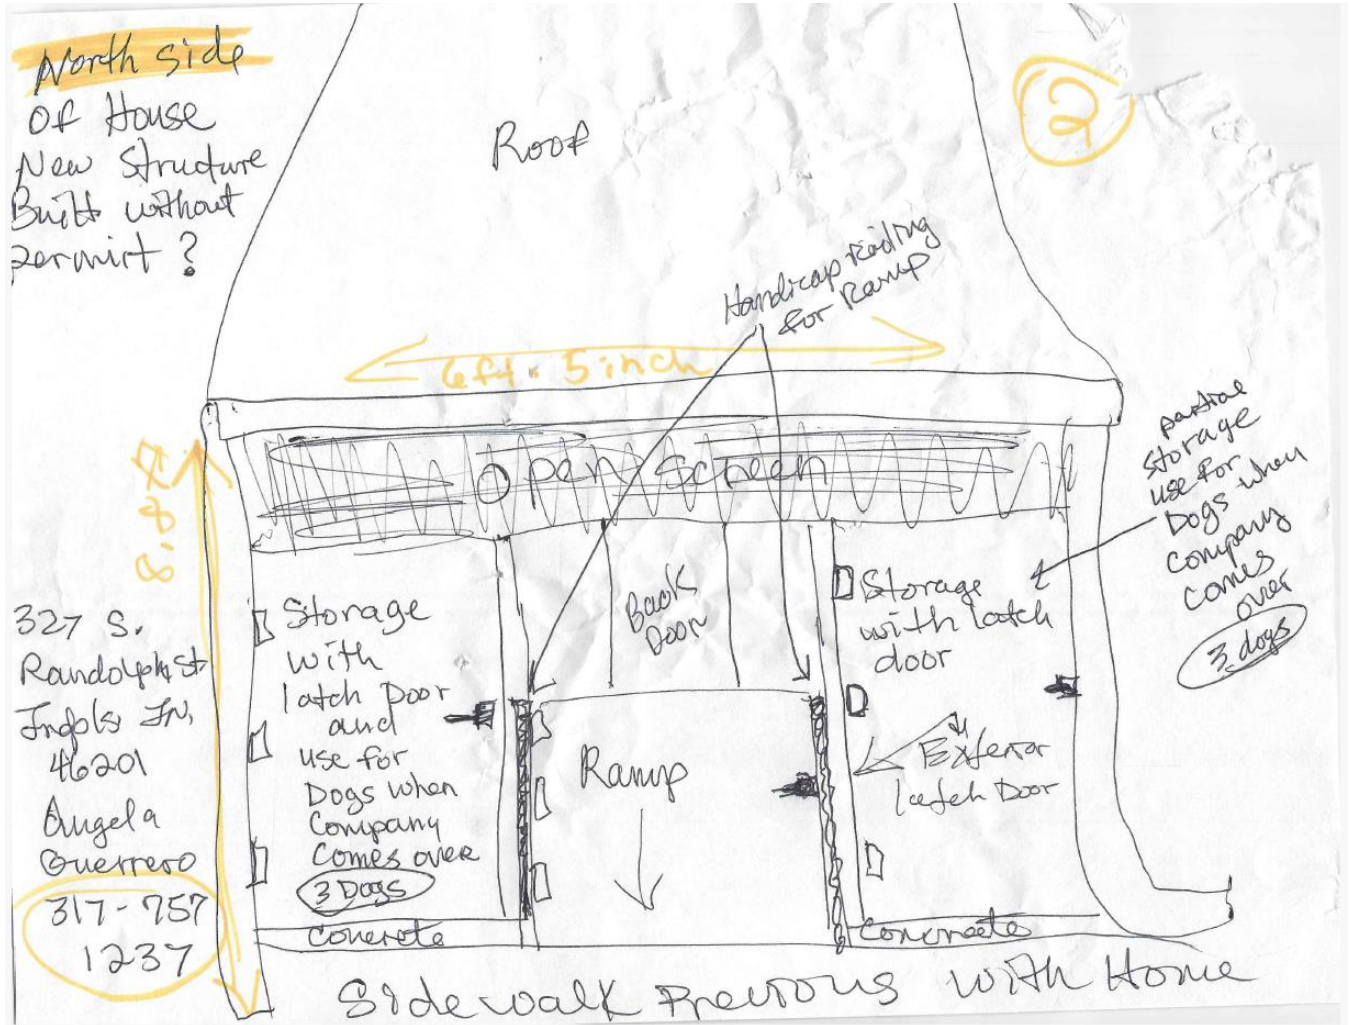 North side
of House
New Structure
Built without
permirt ?
2
Roof
Handicap Railing
for Ramp
6ft. 5 inch
Open Screen
partial
storage
use for
Dogs when
Company
comes
over
3 dogs
327 S.
Randolph St
Indpls IN,
46201
Angela
Guerrero
317-757
1237
Storage
with
latch Door
and
use for
Dogs when
Company
Comes over
3 Dogs
Concrete
Back
Door
Ramp
Storage
with latch
door
Exterior
latch Door
Concreate
Sidewalk Previous with Home